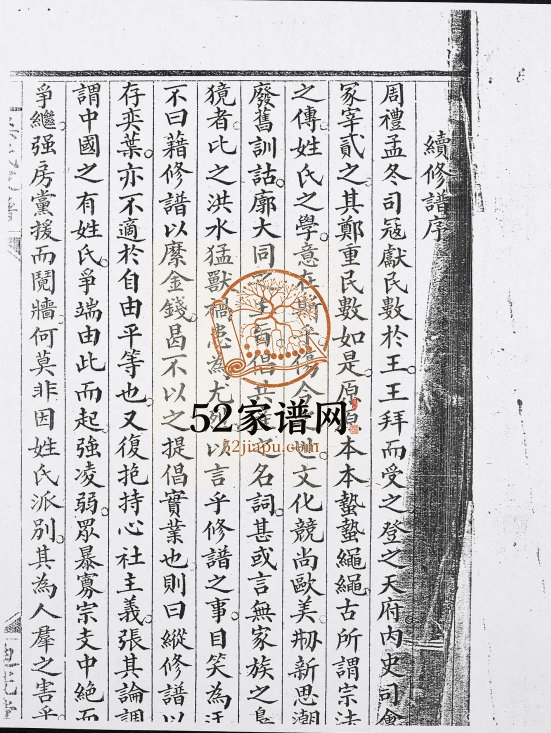 續修譜序
周禮孟冬司寇獻民數於王王拜而受之登之天府内史司會
冢宰貳之其鄭重民數如是原原本本蟄蟄繩繩古所謂宗法
之傳姓氏之學意在斯乎傷今 世文化競尚歐美刱新思潮
廢舊訓詁廓大同之主旨倡共 之名詞甚或言無家族之
獍者比之洪水猛獸禍患為尤 以言乎修譜之事目笑為迂
不曰藉修譜以縻金錢曷不以之提倡實業也則曰縱修譜以
存奕葉亦不適於自由平等也又復抱持心社主義張其論調
謂中國之有姓氏爭端由此而起強凌弱眾暴寡宗支中絶而
爭繼强房黨援而鬩牆何莫非因姓氏派別其為人羣之害乎
52家谱网
52jiapu.com